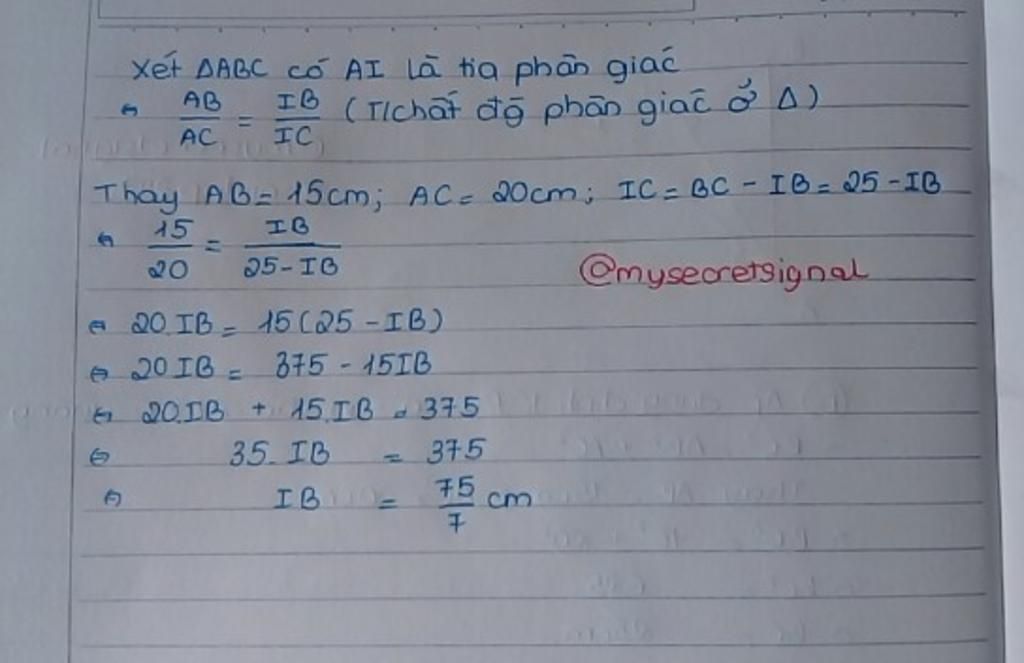 Xét ΔABC có AI là tia phân giác
⇔ AB/AC = IB/IC (T/chất đg phân giác ở Δ)
Thay AB = 15cm; AC = 20cm; IC = BC - IB = 25 - IB
⇔ 15/20 = IB/25 - IB
@mysecretsignal
⇔ 20.IB = 15(25 - IB)
⇔ 20IB = 375 - 15IB
⇔ 20.IB + 15.IB = 375
⇔ 35.IB = 375
⇔ IB = 75/7 cm